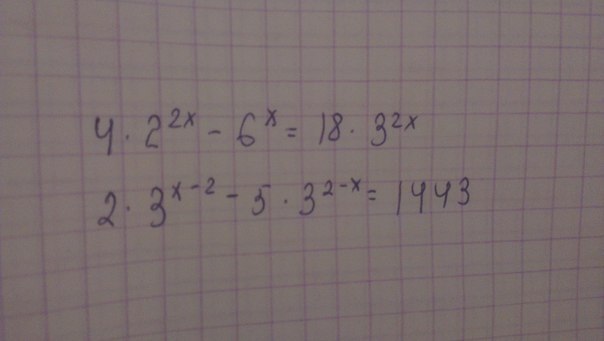 4 · 2^{2x} - 6^{x} = 18 · 3^{2x}
2 · 3^{x-2} - 5 · 3^{2-x} = 1443